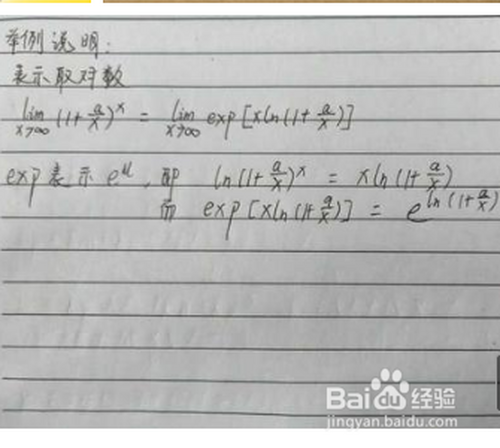 举例说明:
表示取对数
lim x→∞ (1+a/x)^x = lim x→∞ exp[xln(1+a/x)]
exp表示e^u, 即 ln(1+a/x)^x = xln(1+a/x)
而 exp[xln(1+a/x)] = e^ln(1+a/x)
Baidu经验
jingyan.baidu.com